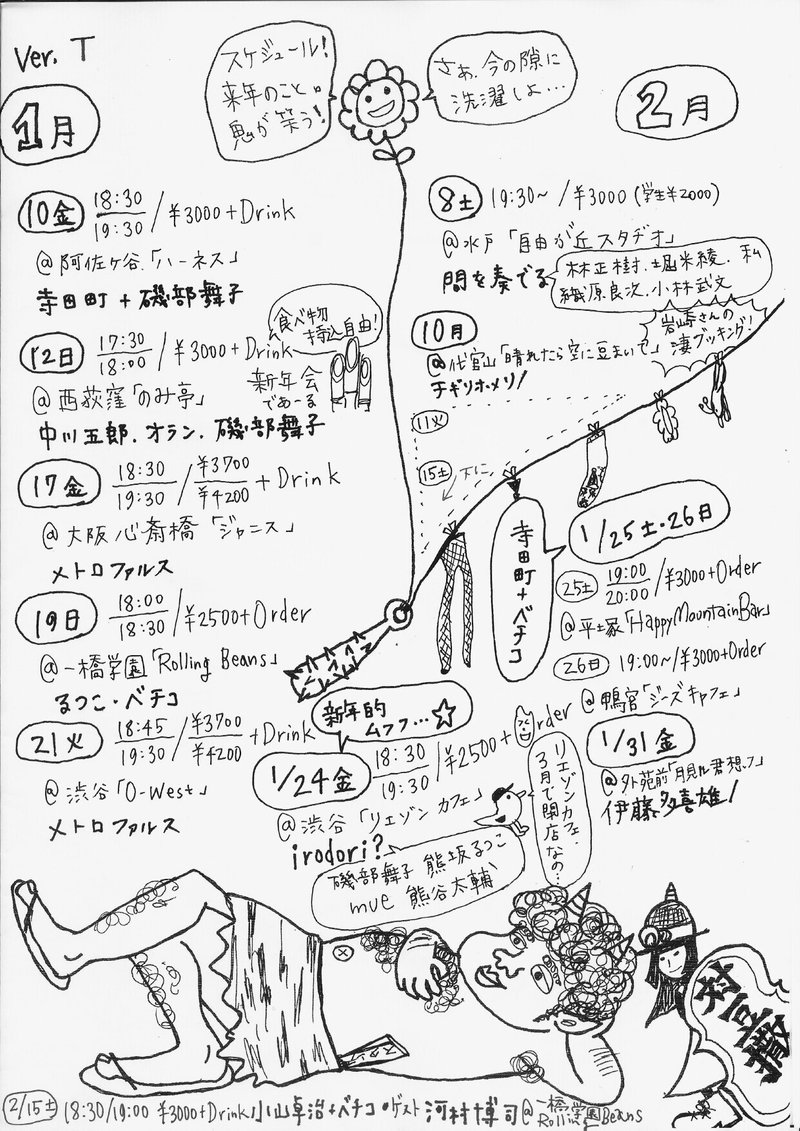 Ver. T
スケジュール!
来年のこと。
鬼が笑う!
さぁ、今の隙に
洗濯しよ…
1月
10金 18:30/19:30/¥3000+Drink
@阿佐ヶ谷「ハーネス」
寺田町+磯部舞子
12日 17:30/18:00/¥3000+Drink
食べ物
持込自由!
@西荻窪「のみ亭」
新年会
であーる
中川五郎、オラン、磯部舞子
17金 18:30/19:30/¥3700/¥4200+Drink
@大阪 心斎橋「ジャニス」
メトロファルス
19日 18:00/18:30/¥2500+Order
@一橋学園「Rolling Beans」
るつこ・ベチコ
21火 18:45/19:30/¥3700/¥4200+Drink
@渋谷「O-West」
メトロファルス
新年的
ムフフ…☆
1/24金 18:30/19:30/¥2500+Order
@渋谷「リエゾン カフェ」
irodori?
磯部舞子 熊坂るつこ
mue 熊谷太輔
リエゾンカフェ、
3月で閉店なの…
2月
8土 19:30~/¥3000(学生¥2000)
@水戸「自由が丘スタヂオ」
間を奏でる
林正樹、堀米綾、私
織原良次、小林武文
10月
@代官山「晴れたら空に豆まいて」
チギリオメリ!
岩崎さんの
凄ブッキング!
11火
15土
下に
寺田町+ベチコ
1/25土・26日
25土 19:00/20:00/¥3000+Order
@平土家「HappyMountainBar」
26日 19:00~/¥3000+Order
@鴨宮「ジーズキャフェ」
1/31金
@外苑前「月見ル君想フ」
伊藤多喜雄!
スタジ
村豆撒
2/15土 18:30/19:00 ¥3000+Drink 小山卓治+ベチコ・ゲスト 河村博司@一橋学園Rolling Beans